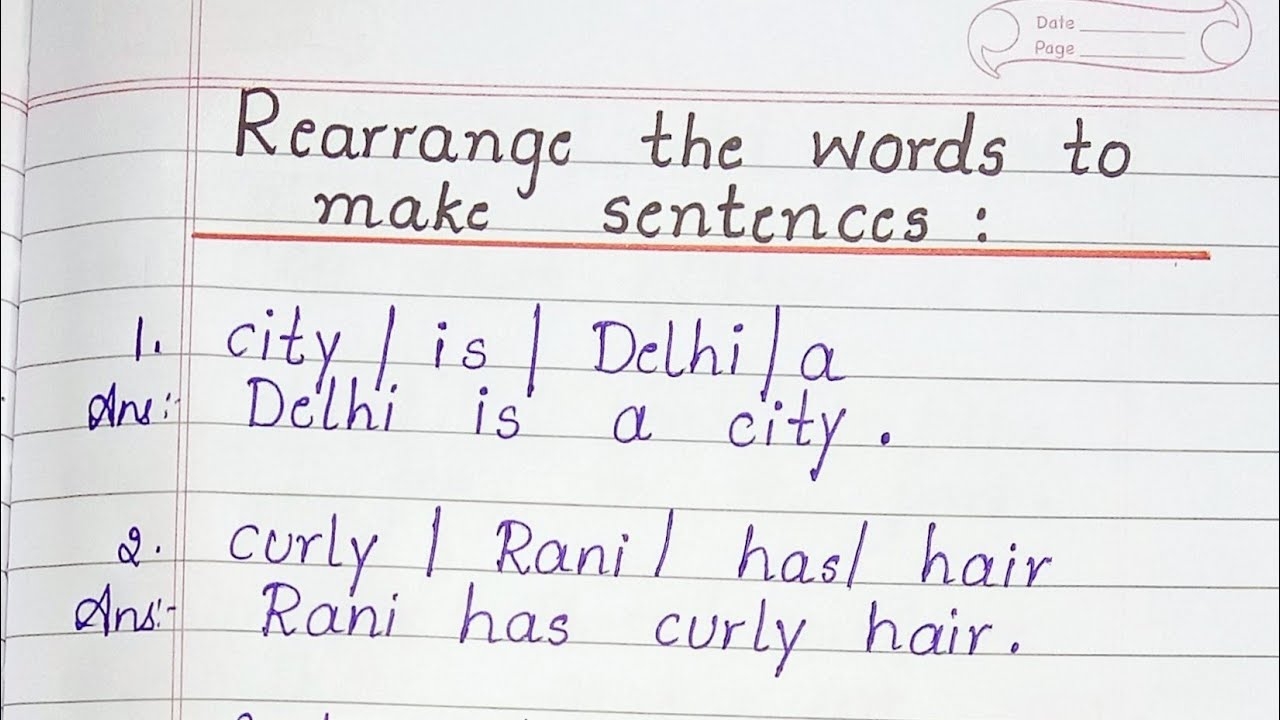 Date
Page
Rearrange the words to
make sentences :
1. city | is | Delhi | a
Ans:- Delhi is a city.
2. curly | Rani | has | hair
Ans:- Rani has curly hair.